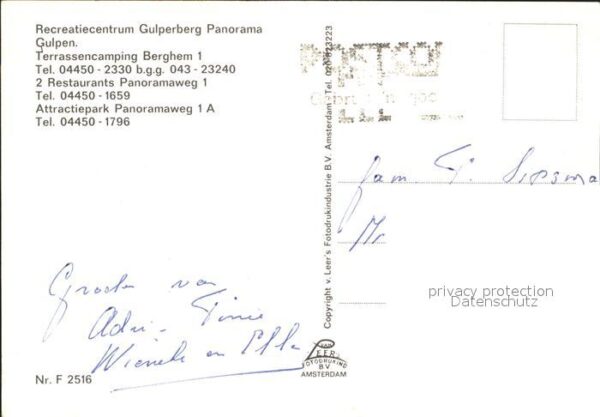 Recreatiecentrum Gulperberg Panorama
Gulpen.
Terrassencamping Berghem 1
Tel. 04450 - 2330 b.g.g. 043 - 23240
2 Restaurants Panoramaweg 1
Tel. 04450 - 1659
Attractiepark Panoramaweg 1 A
Tel. 04450 - 1796
Groeten van
Adri - Tinie
Wieneke en Ella
Nr. F 2516
Copyright v. Leer's Fotodrukindustrie B.V. Amsterdam Tel. 020-823223
VAN LEER
FOTODRUKIND
B.V.
AMSTERDAM
Fam. T.
privacy protection
Datenschutz